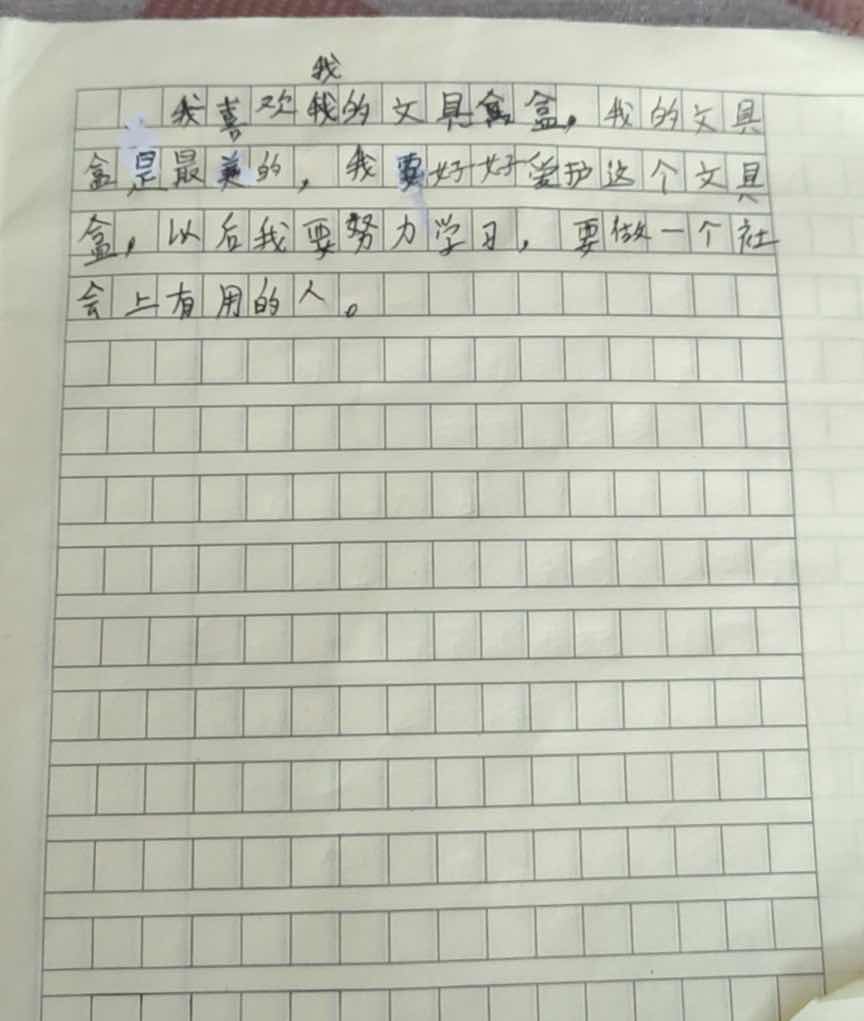 我
我喜欢我的文具盒盒，我的文具
盒是最美的，我要好好爱护这个文具
盒，以后我要努力学习，要做一个社
会上有用的人。